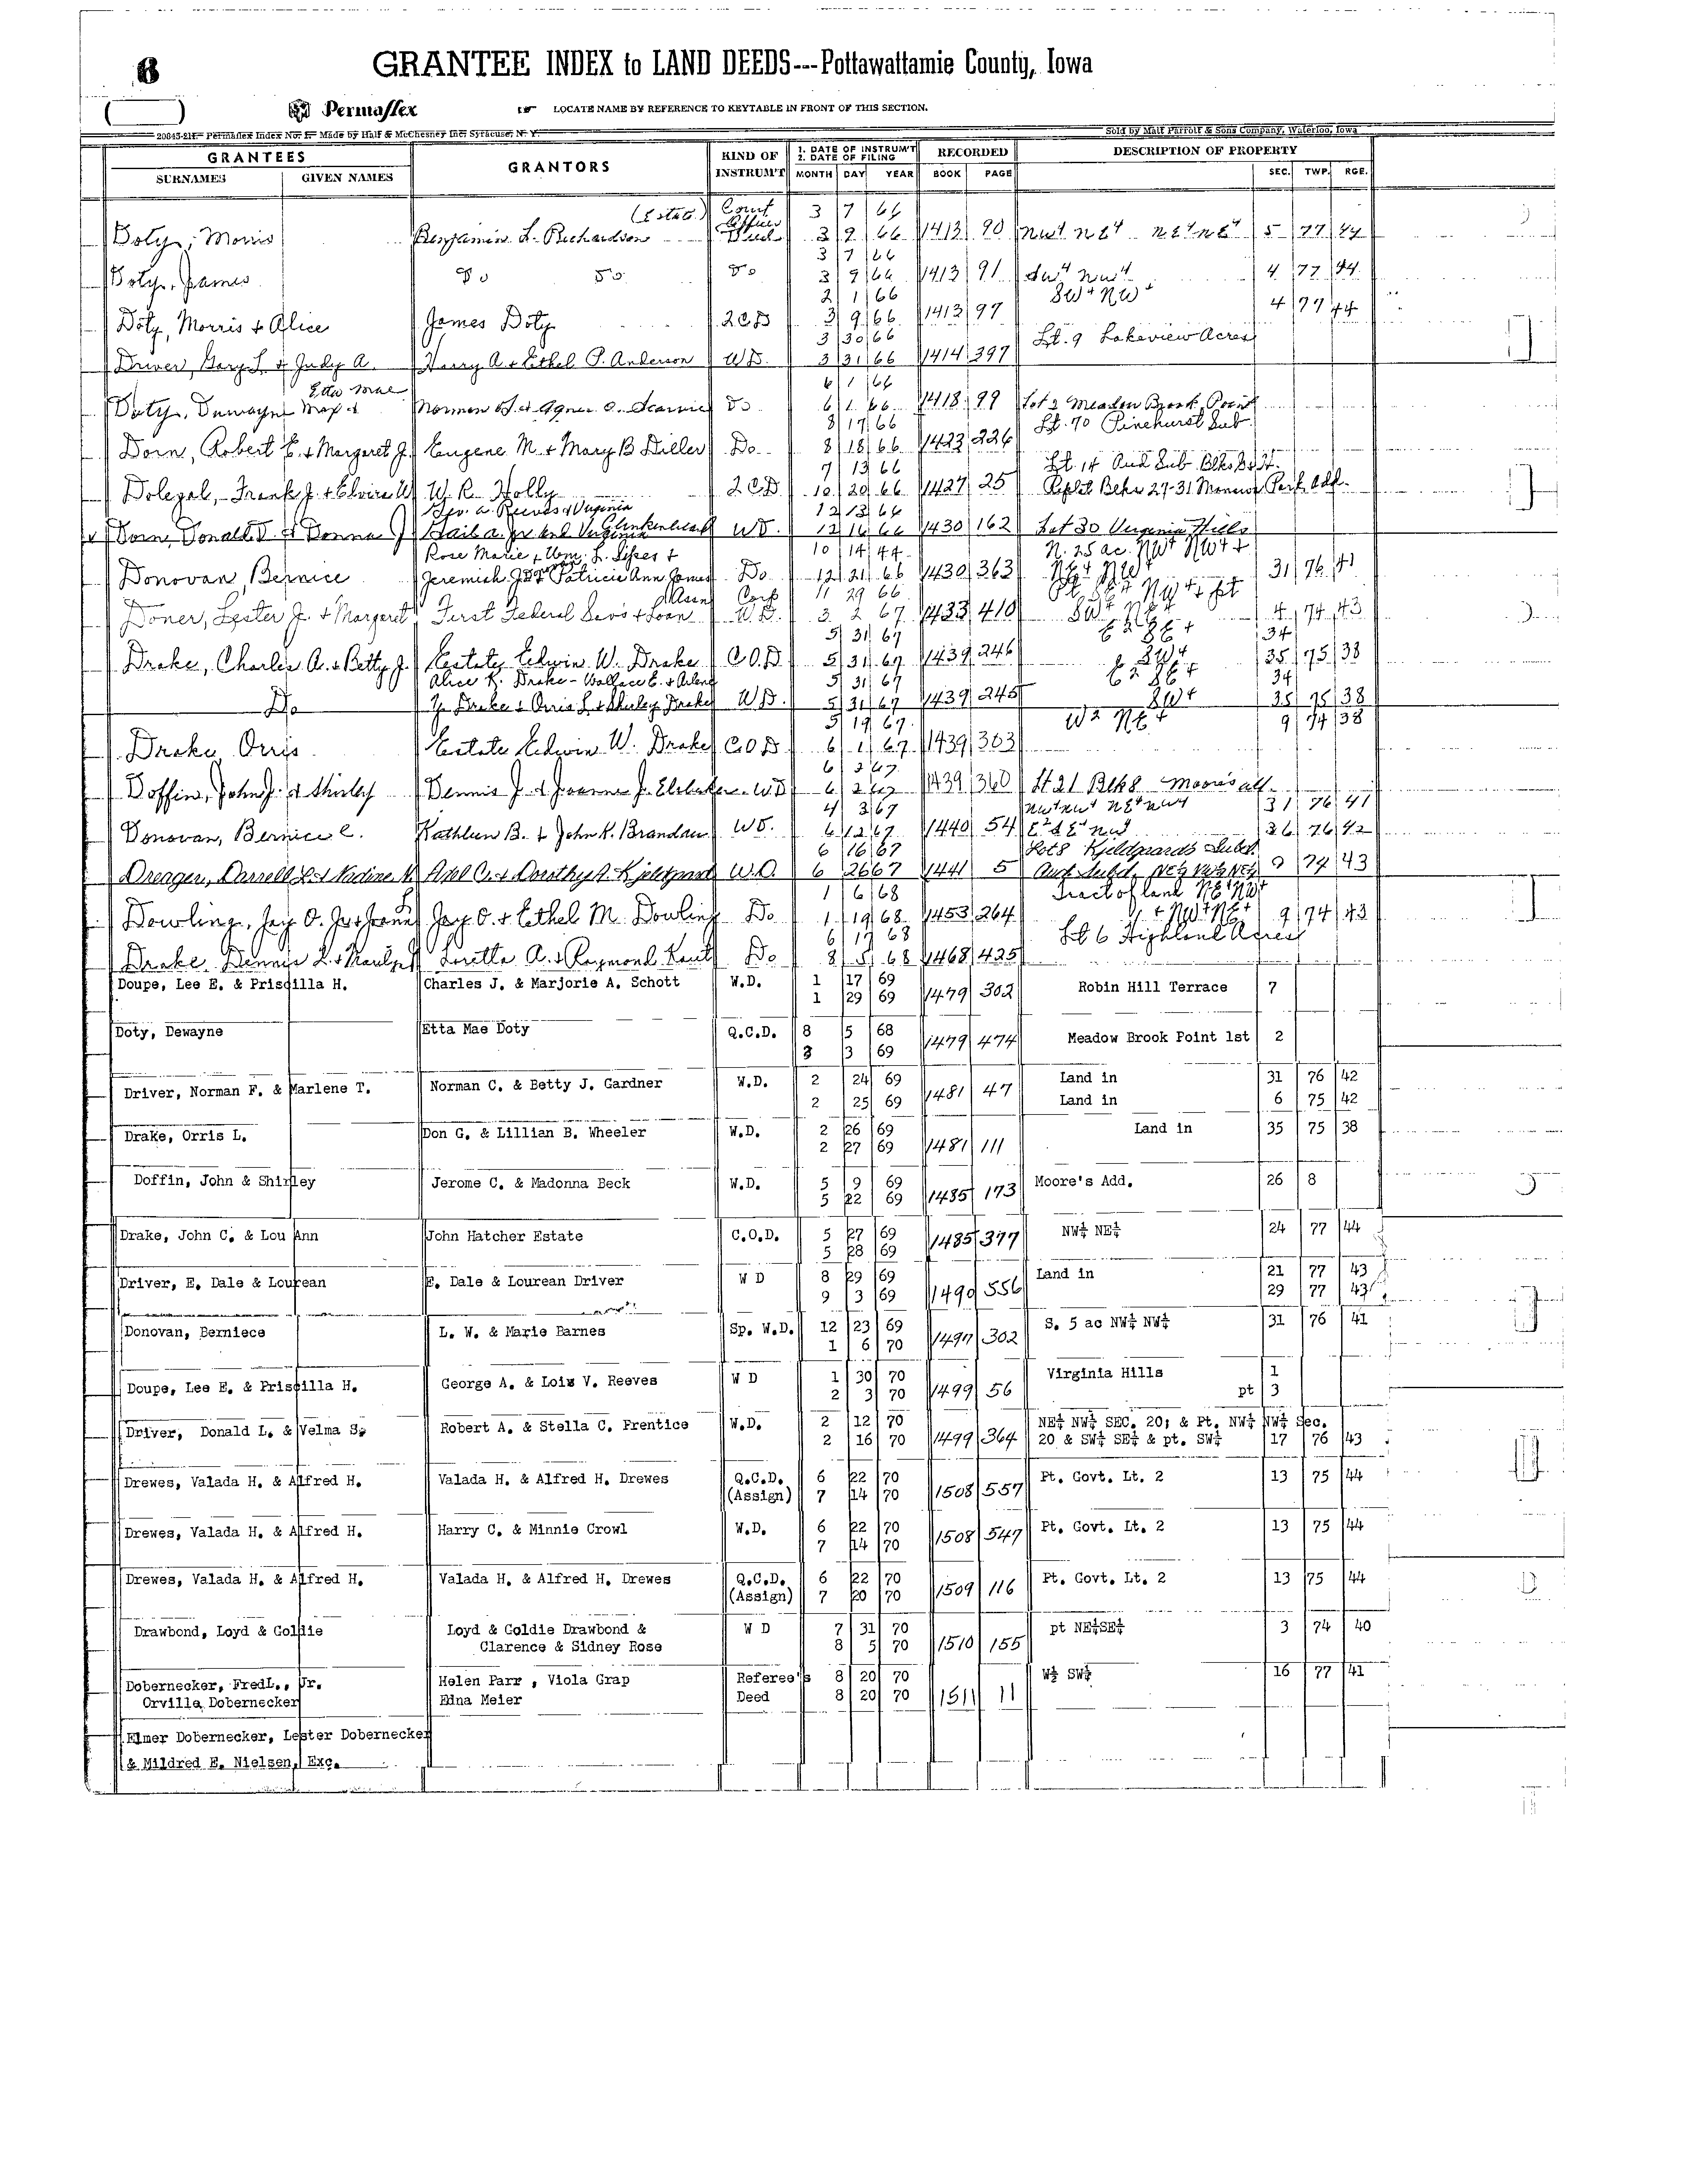 6
GRANTEE INDEX to LAND DEEDS---Pottawattamie County, Iowa
( )
Permaflex
LOCATE NAME BY REFERENCE TO KEYTABLE IN FRONT OF THIS SECTION.
Sold by Matt Parrott & Sons Company, Waterloo, Iowa
GRANTEES GRANTORS KIND OF INSTRUM'T 1. DATE OF INSTRUM'T 2. DATE OF FILING RECORDED DESCRIPTION OF PROPERTY
SURNAMES GIVEN NAMES MONTH DAY YEAR BOOK PAGE SEC. TWP. RGE.
(Estate) Court 3 7 66
Doty, Morris Benjamin L. Richardson Officer Deed 3 9 66 1413 90 NW4 NE4 NE4 NE4 5 77 44
3 7 66
Doty, James Do Do Do 3 9 66 1413 91 SW4 NW4 4 77 44
2 1 66 SW4 NW4
Doty, Morris & Alice James Doty 2CD 3 9 66 1413 97 4 77 44
3 30 66
Driver, Gary L. & Judy A. Harry A. & Ethel P. Anderson WD. 3 31 66 1414 397 Lt. 9 Lakeview Acres
Etta Mae 6 1 66
Doty, Dewayne Max & Norman & Agnes Do 6 1 66 1418 99 Lot 2 Meadow Brook Point
8 17 66 Lt. 70 Pinehurst Sub.
Dorn, Robert E. & Margaret J. Eugene M. & Mary B Diller Do 8 18 66 1423 226
7 13 66 Lt. 14 Aud Sub Blks
Dolezal, Frank J. & Elvira W. W. R. Holly 2CD 10 20 66 1427 25 Replat Blks 27-31 Monroe Park Add.
Geo. A. Reeves & Virginia 12 13 66
Dorn, Donald D. & Donna J Gail A. Jr. and Virginia Glinkenbeard WD. 12 16 66 1430 162 Lot 30 Virginia Hills
Rose Marie & Wm. L. Sipes & 10 14 44 N. 25 ac. NW4 NW4 &
Donovan, Bernice Jeremiah & Patricia Ann James Do 12 21 66 1430 363 NE4 NW4 31 76 41
Assn Corp 11 29 66 Pt. SE4 NW4 & pt
Doner, Lester J. & Margaret First Federal Sav's & Loan W.D. 3 2 67 1433 410 SW4 NE4 4 74 43
5 31 67 E2 SE4 34
Drake, Charles A. & Betty J. Estate Edwin W. Drake C.O.D 5 31 67 1439 246 SW4 35 75 38
Alice K. Drake - Wallace E. & Arlene 5 31 67 E2 SE4 34
Do Y. Drake & Orris L. & Shirley Drake WD. 5 31 67 1439 245 SW4 35 75 38
5 19 67 W2 NE4 9 74 38
Drake Orris Estate Edwin W. Drake C.O.D 6 1 67 1439 303
6 2 67
Doffin, John J. & Shirley Dennis J. & Joanne J. WD 6 2 67 1439 360 Lt 21 Blk 8 Moore's add.
4 3 67 NW4 NW4 NE4 NW4 31 76 41
Donovan, Bernice C. Kathleen B. & John K. Brandau WD. 6 12 67 1440 54 E2 & E2 NW 36 76 42
6 16 67 Lot 8 Kjeldgaards Subd.
Drenger, Darrell L. & Nadine M Axel C. & Dorothy A. Kjeldgaard W.D. 6 26 67 1441 5 Aud Subd. NE4 NW4 NE4 9 74 43
1 6 68 Tract of land NE4 NW4
Dowling, Jay O. Jr & Joann Jay O. & Ethel M. Dowling Do 1 19 68 1453 264 & NW4 NE4 9 74 43
6 17 68 Lt 6 Highland Acres
Drake, Dennis L. & Loretta A. & Raymond Do 8 5 68 1468 425
Doupe, Lee E. & Priscilla H. Charles J. & Marjorie A. Schott W.D. 1 17 69
1 29 69 1479 302 Robin Hill Terrace 7
Doty, Dewayne Etta Mae Doty Q.C.D. 8 5 68
3 3 69 1479 474 Meadow Brook Point 1st 2
Driver, Norman F. & Marlene T. Norman C. & Betty J. Gardner W.D. 2 24 69 Land in 31 76 42
2 25 69 1481 47 Land in 6 75 42
Drake, Orris L. Don G. & Lillian B. Wheeler W.D. 2 26 69 Land in 35 75 38
2 27 69 1481 111
Doffin, John & Shirley Jerome C. & Madonna Beck W.D. 5 9 69 Moore's Add. 26 8
5 22 69 1485 173
Drake, John C. & Lou Ann John Hatcher Estate C.O.D. 5 27 69 NW¼ NE¼ 24 77 44
5 28 69 1485 377
Driver, E. Dale & Lourean E. Dale & Lourean Driver W D 8 29 69 Land in 21 77 43
9 3 69 1490 556 29 77 43
Donovan, Berniece L. W. & Marie Barnes Sp. W.D. 12 23 69 S. 5 ac NW¼ NW¼ 31 76 41
1 6 70 1497 302
Doupe, Lee E. & Priscilla H. George A. & Lois V. Reeves W D 1 30 70 Virginia Hills 1
2 3 70 1499 56 pt 3
Driver, Donald L. & Velma S. Robert A. & Stella C. Prentice W.D. 2 12 70 NE¼ NW¼ SEC. 20; & Pt. NW¼ NW¼ Sec.
2 16 70 1499 364 20 & SW¼ SE¼ & pt. SW¼ 17 76 43
Drewes, Valada H. & Alfred H. Valada H. & Alfred H. Drewes Q.C.D. 6 22 70 Pt. Govt. Lt. 2 13 75 44
(Assign) 7 14 70 1508 557
Drewes, Valada H. & Alfred H. Harry C. & Minnie Crowl W.D. 6 22 70 Pt. Govt. Lt. 2 13 75 44
7 14 70 1508 547
Drewes, Valada H. & Alfred H. Valada H. & Alfred H. Drewes Q.C.D. 6 22 70 Pt. Govt. Lt. 2 13 75 44
(Assign) 7 20 70 1509 116
Drawbond, Loyd & Goldie Loyd & Goldie Drawbond & W D 7 31 70 pt NE¼SE¼ 3 74 40
Clarence & Sidney Rose 8 5 70 1510 155
Dobernecker, FredL., Jr. Helen Parr , Viola Grap Referee's 8 20 70 W½ SW¼ 16 77 41
Orville Dobernecker Edna Meier Deed 8 20 70 1511 11
Elmer Dobernecker, Lester Dobernecker
& Mildred E. Nielsen, Exc.